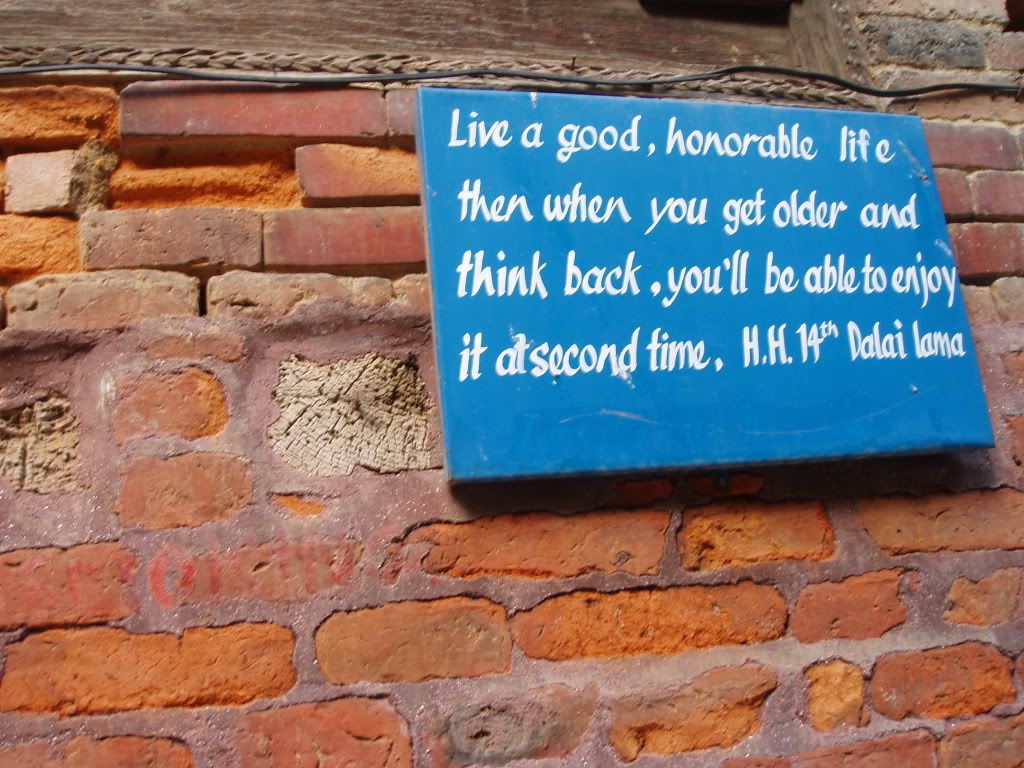 Live a good, honorable life
then when you get older and
think back, you'll be able to enjoy
it at second time, H.H. 14th Dalai lama